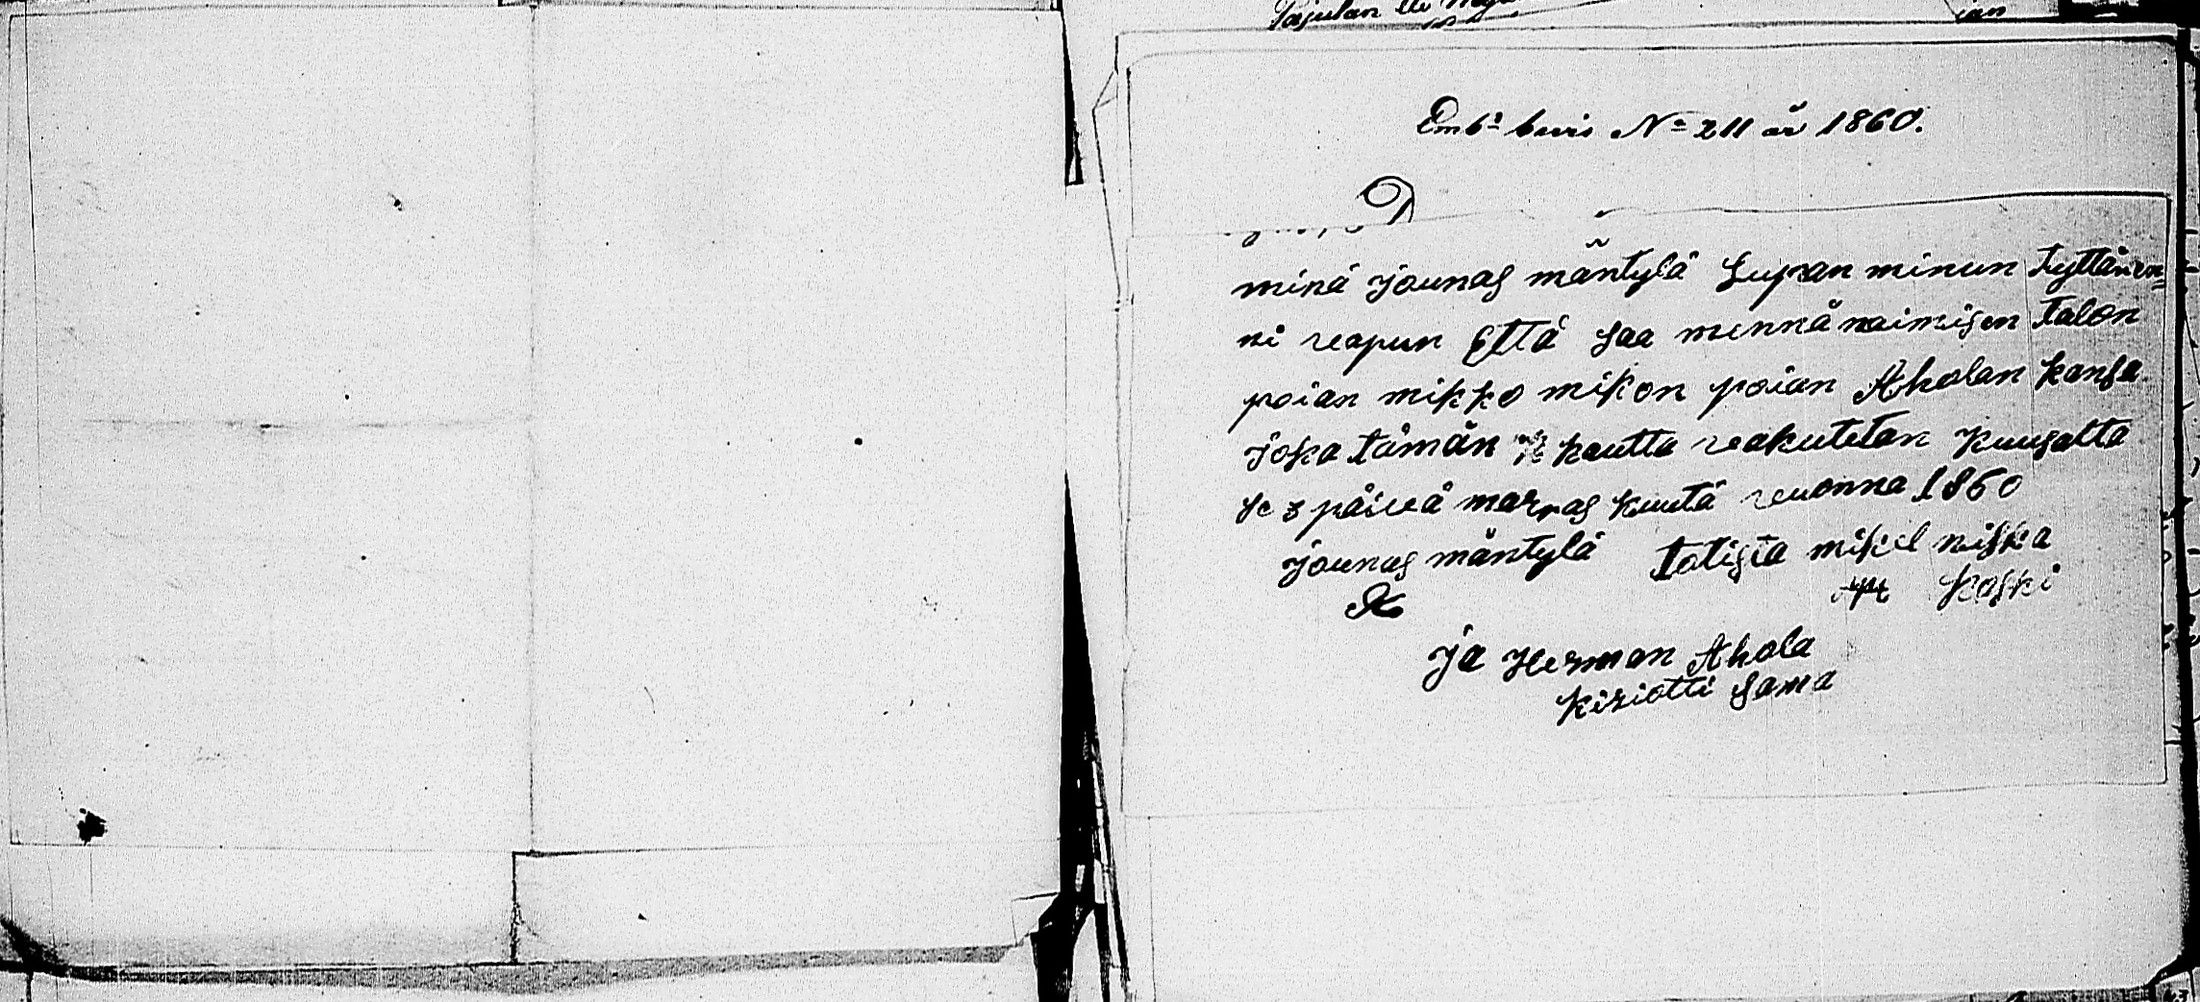 Pajulan
Emb:s bevis No 211 år 1860.
minä jounas mäntylä Lupan minun tyttären=
ni reapun Että saa mennä naimisen talon
poian mikko mikon poian Aholan kansa
joka tämän kautta reakutetan kuusalta
se 3 päivä marras kuuta vuonna 1860
jounas mäntylä totista mikel niska
koski
ja Herman Ahola
kiriotti sama